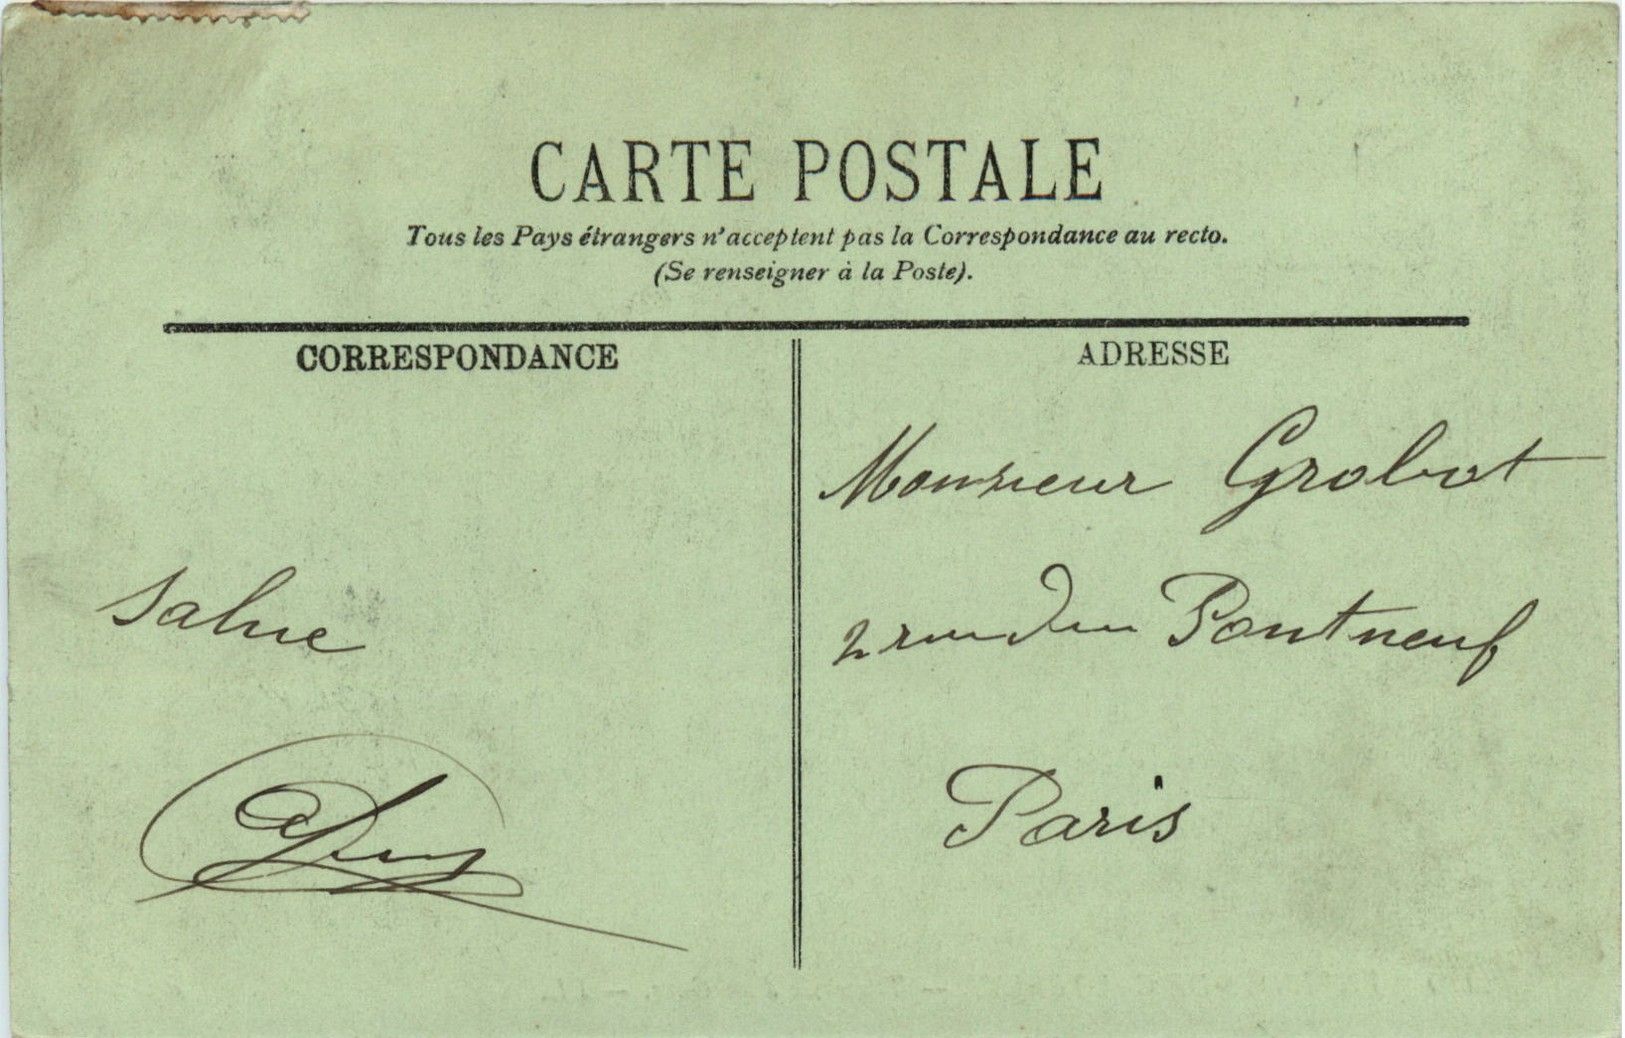 CARTE POSTALE
Tous les Pays étrangers n'acceptent pas la Correspondance au recto.
(Se renseigner à la Poste).
CORRESPONDANCE
salue
ADRESSE
Monsieur Grobot
2 rue du Pontneuf
Paris